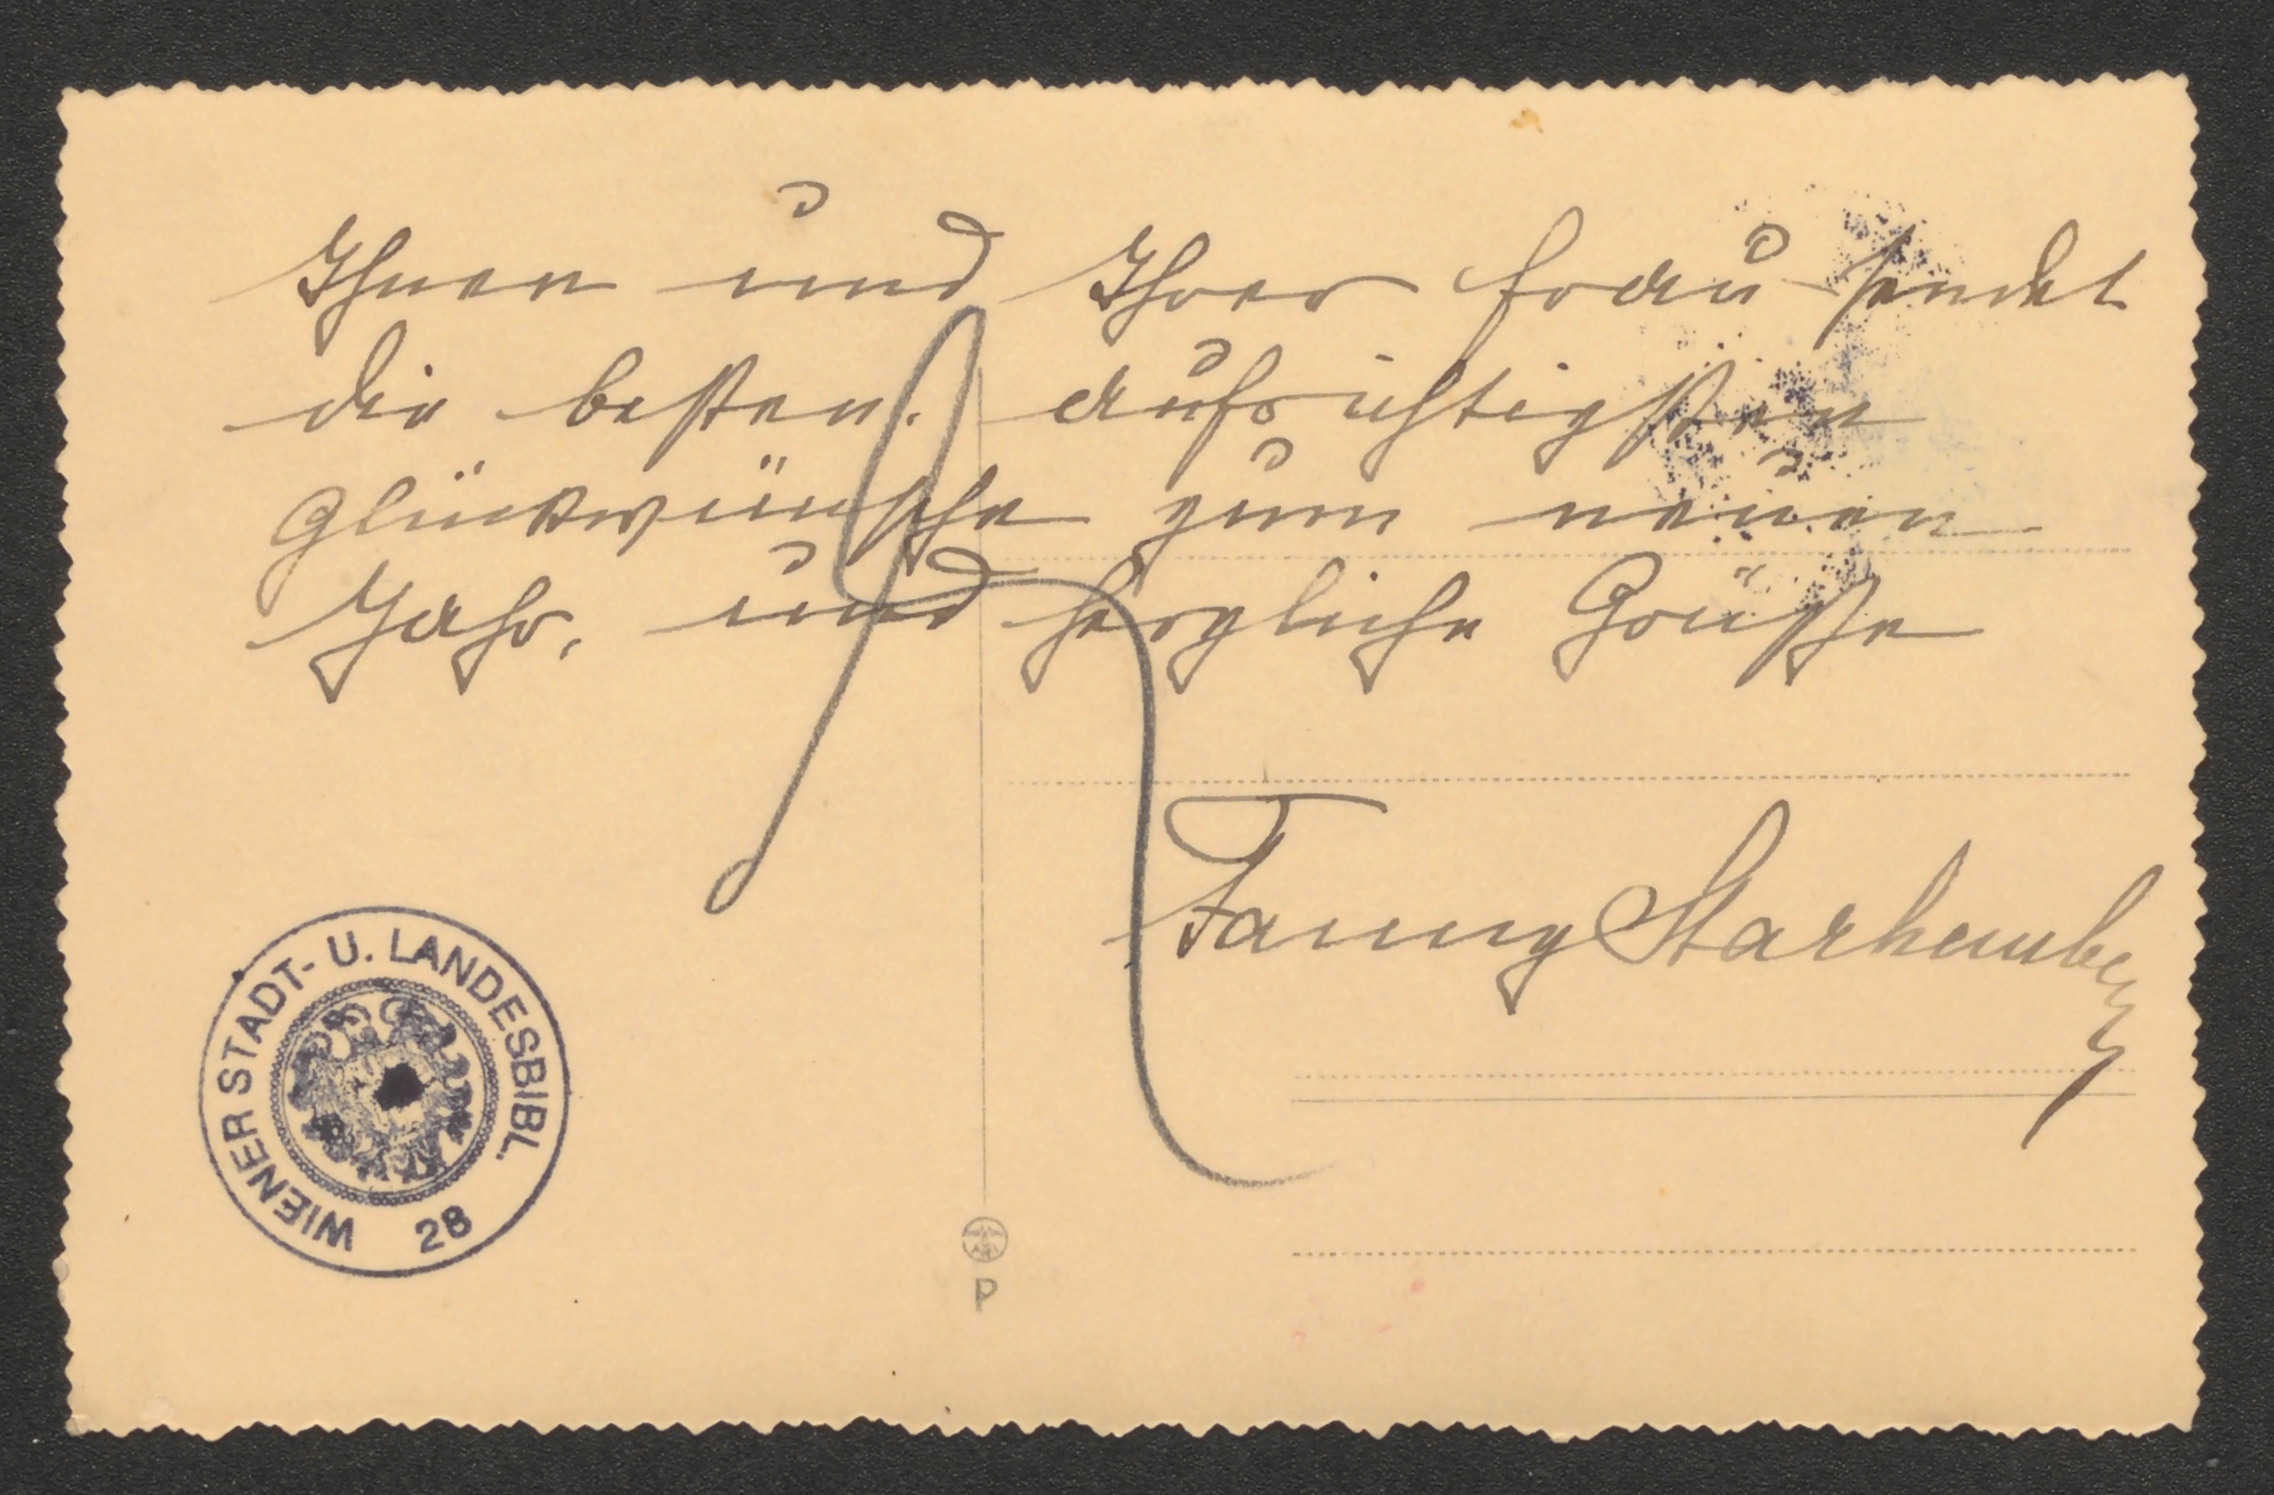 Ihnen und Ihrer Frau sendet
die besten. aufrichtigsten
Glückwünsche zum neuen
Jahr, und herzliche Grüße
Fanny Starhemberg
WIENER STADT- U. LANDESBIBL.
28
P